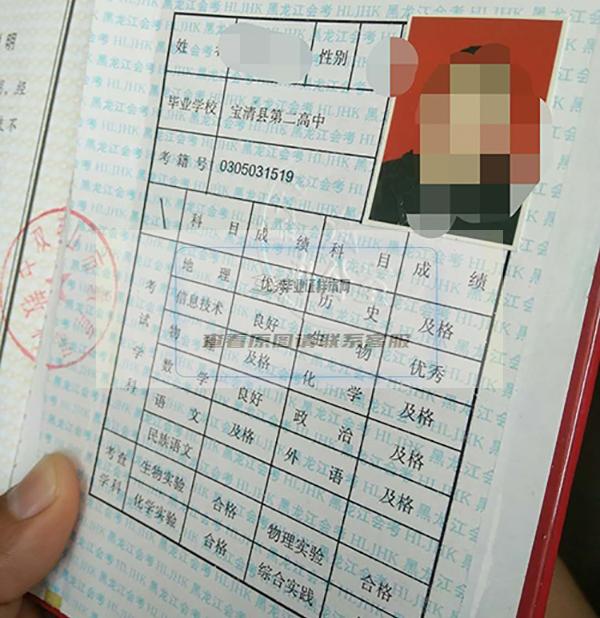 明
姓 性别
毕业学校 宝清县第二高中
考籍号 0305031519
科目 成绩 科目 成绩
地理 优秀 历史 及格
信息技术 良好 生物 优秀
物 及格 化学 及格
数学 良好 政治 及格
语文 及格 外语 及格
民族语文
生物实验 合格 物理实验 合格
化学实验 合格 综合实践
考试学科
考查学科
查看原图请联系客服
黑龙江会考 HLJHK